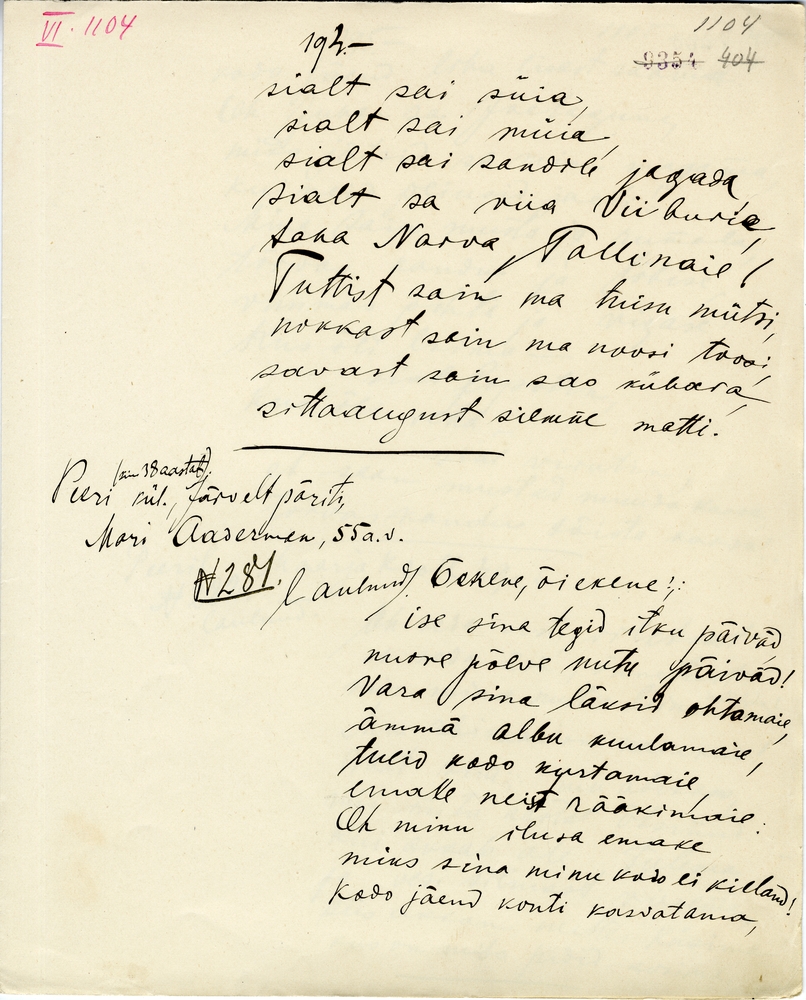 VI. 1104
1104
9354 404
192.—
sialt sai süia,
sialt sai müia,
sialt sai sandile jagada
sialt sa viia Viiburie,
taha Narva, Tallinaie!
Tuttist sain ma tuisu mütsi,
nokkast sain ma noosi toosi,
savast sain sao kübara,
sittaaugust silmile matti.
(siin 38 aastat).
Peeri kül., Järvelt pärit,
Mari Aaderman, 55 a. v.
N 281. (laulnud). Öekene, õiekene!;:
ise sina tegid itku päiväd,
nuore põlve nutu päiväd!
Vara sina läksid ohtamaie,
ämmä albu kuulamaie,
tulid kodo kustamaie,
emalle neist rääkimaie:
Oh minu ilusa emake
miks sina minu kodo ei kielland!
Kodo jäend konti kasvatama,